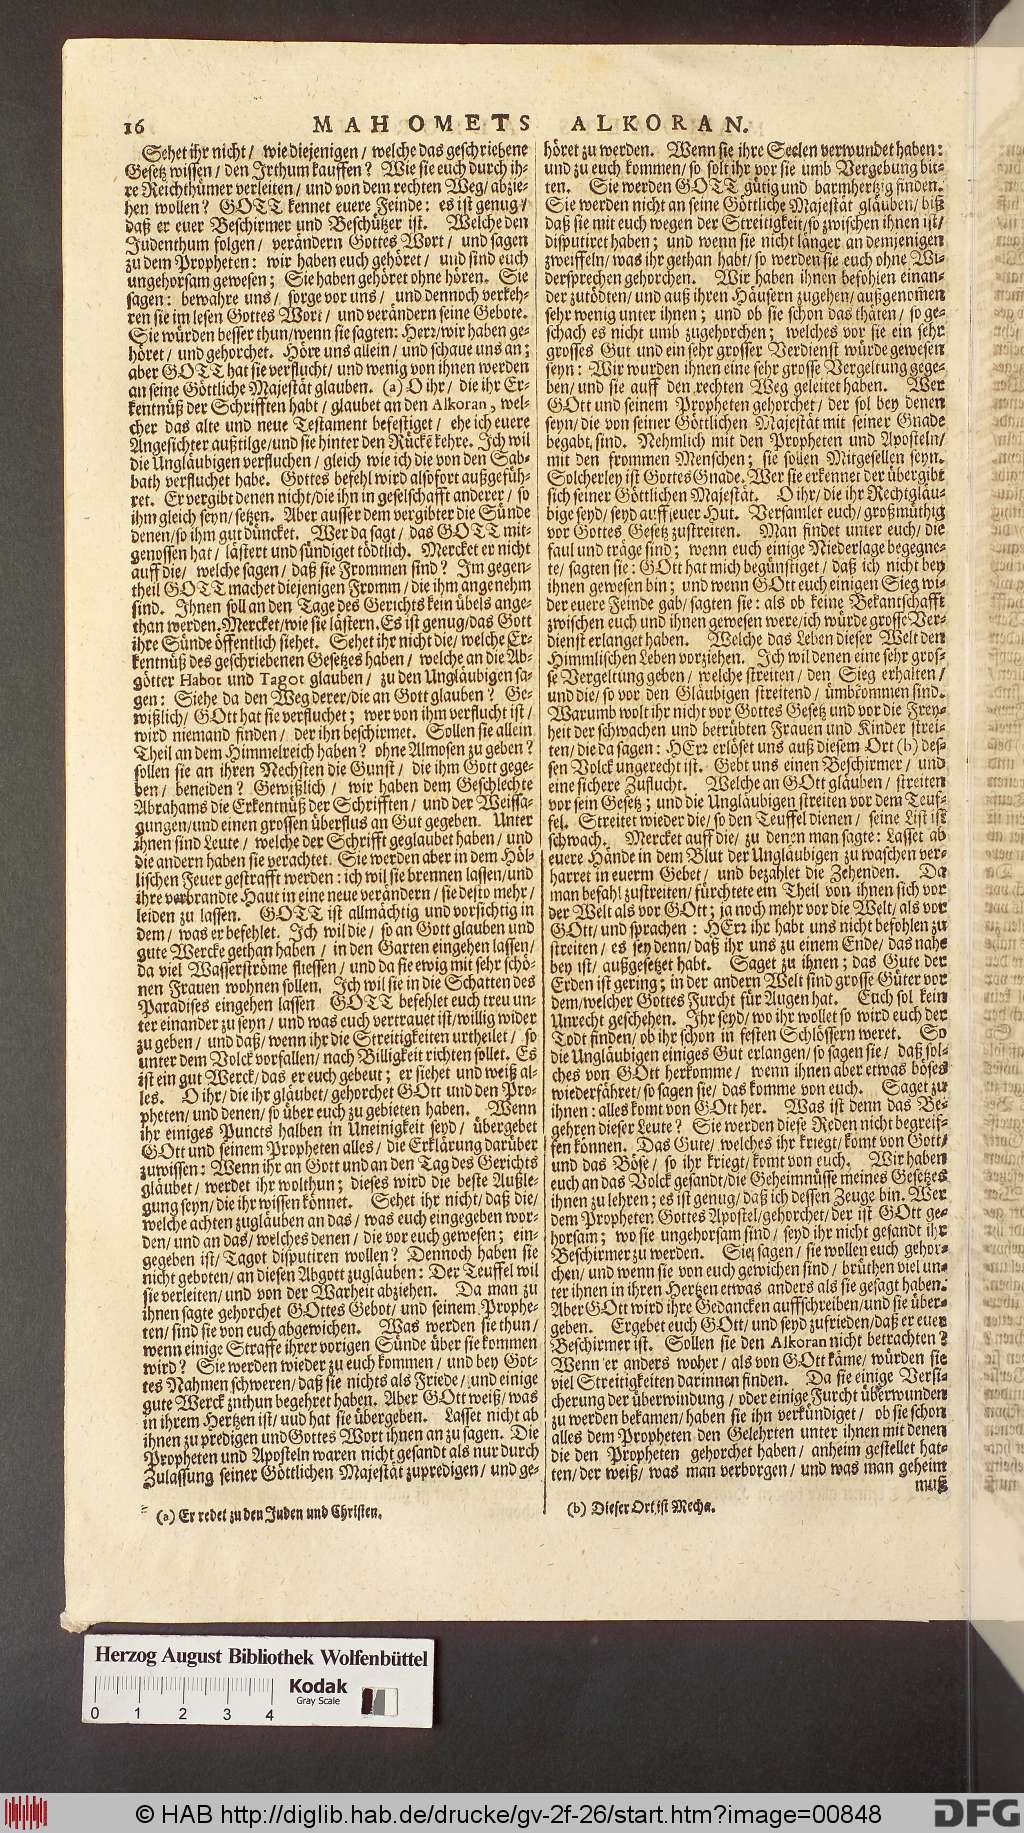 16 MAHOMETS ALKORAN.
Sehet ihr nicht/ wie diejenigen/ welche das geschriebene
Gesetz wissen/ den Irthum kauffen? Wie sie euch durch ih-
re Reichthümer verleiten/ und von dem rechten Weg/ abzie-
hen wollen? GOTT kennet euere Feinde: es ist genug/
daß er euer Beschirmer und Beschützer ist. Welche den
Judenthum folgen/ verändern Gottes Wort/ und sagen
zu dem Propheten: wir haben euch gehöret/ und sind euch
ungehorsam gewesen; Sie haben gehöret ohne hören. Sie
sagen: bewahre uns/ sorge vor uns/ und dennoch verkeh-
ren sie im lesen Gottes Wort/ und verändern seine Gebote.
Sie würden besser thun/wenn sie sagten: Herz/wir haben ge-
höret/ und gehorchet. Höre uns allein/ und schaue uns an;
aber GOTT hat sie verflucht/ und wenig von ihnen werden
an seine Göttliche Majestät glauben. (a) O ihr/ die ihr Er-
kentnüß der Schrifften habt/ glaubet an den Alkoran, wel-
cher das alte und neue Testament befestiget/ ehe ich euere
Angesichter außtilge/und sie hinter den Rückē kehre. Ich wil
die Ungläubigen verfluchen/ gleich wie ich die von den Sab-
bath verfluchet habe. Gottes befehl wird alsofort außgefüh-
ret. Er vergibt denen nicht/die ihn in geselschafft anderer/ so
ihm gleich seyn/ setzen. Aber ausser dem vergibter die Sünde
denen/so ihm gut düncket. Wer da sagt/ das GOTT mit-
genossen hat/ lästert und sündiget tödtlich. Mercket er nicht
auff die/ welche sagen/ daß sie Frommen sind? Im gegen-
theil GOTT machet diejenigen Fromm/ die ihm angenehm
sind. Ihnen soll an den Tage des Gerichts kein übels ange-
than werden. Mercket/wie sie lästern. Es ist genug/das Gott
ihre Sünde öffentlich siehet. Sehet ihr nicht die/ welche Er-
kentnüß des geschriebenen Gesetzes haben/ welche an die Ab-
götter Habot und Tagot glauben/ zu den Ungläubigen sa-
gen: Siehe da den Weg derer/die an Gott glauben? Ge-
wißlich/ GOtt hat sie verfluchet; wer von ihm verflucht ist/
wird niemand finden/ der ihn beschirmet. Sollen sie allein
Theil an dem Himmelreich haben? ohne Almosen zu geben?
sollen sie an ihren Nechsten die Gunst/ die ihm Gott gege-
ben/ beneiden? Gewißlich/ wir haben dem Geschlechte
Abrahams die Erkentnüß der Schrifften/ und der Weissa-
gungen/und einen grossen überflus an Gut gegeben. Unter
ihnen sind Leute/ welche der Schrifft geglaubet haben/ und
die andern haben sie verachtet. Sie werden aber in dem Höl-
lischen Feuer gestrafft werden: ich wil sie brennen lassen/und
ihre verbrandte Haut in eine neue verändern/ sie desto mehr/
leiden zu lassen. GOTT ist allmächtig und vorsichtig in
dem/ was er befehlet. Ich wil die/ so an Gott glauben und
gute Wercke gethan haben/ in den Garten eingehen lassen/
da viel Wasserströme fliessen/ und da sie ewig mit sehr schö-
nen Frauen wohnen sollen. Ich wil sie in die Schatten des
Paradises eingehen lassen GOTT befehlet euch treu un-
ter einander zu seyn/ und was euch vertrauet ist/willig wider
zu geben/ und daß/ wenn ihr die Streitigkeiten urtheilet/ so
unter dem Volck vorfallen/ nach Billigkeit richten sollet. Es
ist ein gut Werck/das er euch gebeut; er siehet und weiß al-
les. O ihr/ die ihr gläubet/ gehorchet GOtt und den Pro-
pheten/ und denen/ so über euch zu gebieten haben. Wenn
ihr einiges Puncts halben in Uneinigkeit seyd/ übergebet
GOtt und seinem Propheten alles/ die Erklärung darüber
zuwissen: Wenn ihr an Gott und an den Tag des Gerichts
gläubet/ werdet ihr wolthun; dieses wird die beste Außle-
gung seyn/ die ihr wissen könnet. Sehet ihr nicht/ daß die/
welche achten zugläuben an das/ was euch eingegeben wor-
den/ und an das/ welches denen/ die vor euch gewesen; ein-
gegeben ist/ Tagot disputiren wollen? Dennoch haben sie
nicht geboten/ an diesen Abgott zugläuben: Der Teuffel wil
sie verleiten/ und von der Warheit abziehen. Da man zu
ihnen sagte gehorchet GOttes Gebot/ und seinem Prophe-
ten/ sind sie von euch abgewichen. Was werden sie thun/
wenn einige Straffe ihrer vorigen Sünde über sie kommen
wird? Sie werden wieder zu euch kommen/ und bey Got-
tes Nahmen schweren/ daß sie nichts als Friede/ und einige
gute Werck znthun begehret haben. Aber GOtt weiß/ was
in ihrem Hertzen ist/ uud hat sie übergeben. Lasset nicht ab
ihnen zu predigen und Gottes Wort ihnen an zu sagen. Die
Propheten und Aposteln waren nicht gesandt als nur durch
Zulassung seiner Göttlichen Majestät zupredigen/ und ge-
(a) Er redet zu den Juden und Christen.
höret zu werden. Wenn sie ihre Seelen verwundet haben:
und zu euch kommen/ so solt ihr vor sie umb Vergebung bit-
ten. Sie werden GOTT gütig und barmhertzig finden.
Sie werden nicht an seine Göttliche Majestät gläuben/ biß
daß sie mit euch wegen der Streitigkeit/so zwischen ihnen ist/
disputiret haben; und wenn sie nicht länger an demjenigen
zweiffeln/ was ihr gethan habt/ so werden sie euch ohne Wi-
dersprechen gehorchen. Wir haben ihnen befohlen einan-
der zutödten/ und auß ihren Häusern zugehen/ außgenom̄en
sehr wenig unter ihnen; und ob sie schon das thäten/ so ge-
schach es nicht umb zugehorchen; welches vor sie ein sehr
grosses Gut und ein sehr grosser Verdienst würde gewesen
seyn: Wir wurden ihnen eine sehr grosse Vergeltung gege-
ben/ und sie auff den rechten Weg geleitet haben. Wer
GOtt und seinem Propheten gehorchet/ der sol bey denen
seyn/ die von seiner Göttlichen Majestät mit seiner Gnade
begabt, sind. Nehmlich mit den Propheten und Aposteln/
mit den frommen Menschen; sie sollen Mitgesellen seyn.
Solcherley ist Gottes Gnade. Wer sie erkennet der übergibt
sich seiner Göttlichen Majestät. O ihr/ die ihr Rechtgläu-
bige seyd/ seyd auff euer Hut. Versamlet euch/ großmüthig
vor Gottes Gesetz zustreiten. Man findet unter euch/ die
faul und träge sind; wenn euch einige Niederlage begegne-
te/ sagten sie: GOtt hat mich begünstiget/ daß ich nicht bey
ihnen gewesen bin; und wenn GOtt euch einigen Sieg wi-
der euere Feinde gab/ sagten sie: als ob keine Bekantschafft
zwischen euch und ihnen gewesen were/ich würde grosse Ver-
dienst erlanget haben. Welche das Leben dieser Welt den
Himmlischen Leben vorziehen. Ich wil denen eine sehr gros-
se Vergeltung geben/ welche streiten/ den Sieg erhalten/
und die/ so vor den Gläubigen streitend/ ümbkommen sind.
Warumb wolt ihr nicht vor Gottes Gesetz und vor die Frey-
heit der schwachen und betrübten Frauen und Kinder strei-
ten/ die da sagen: HErz erlöset uns auß diesem Ort (b) des-
sen Volck ungerecht ist. Gebt uns einen Beschirmer/ und
eine sichere Zuflucht. Welche an GOtt gläuben/ streiten
vor sein Gesetz; und die Ungläubigen streiten vor dem Teuf-
fel. Streitet wieder die/ so den Teuffel dienen/ seine List ist
schwach. Mercket auff die/ zu denen man sagte: Lasset ab
euere Hände in dem Blut der Ungläubigen zu waschen ver-
harret in euerm Gebet/ und bezahlet die Zehenden. Da
man befahl zustreiten/ fürchtete ein Theil von ihnen sich vor
der Welt als vor GOtt; ja noch mehr vor die Welt/ als vor
GOtt/ und sprachen: HErz ihr habt uns nicht befohlen zu
streiten/ es sey denn/ daß ihr uns zu einem Ende/ das nahe
bey ist/ außgesetzet habt. Saget zu ihnen; das Gute der
Erden ist gering; in der andern Welt sind grosse Güter vor
dem/welcher Gottes Furcht für Augen hat. Euch sol kein
Unrecht geschehen. Ihr seyd/ wo ihr wollet so wird euch der
Todt finden/ ob ihr schon in festen Schlössern weret. So
die Ungläubigen einiges Gut erlangen/ so sagen sie/ daß sol-
ches von GOtt herkomme/ wenn ihnen aber etwas böses
wiederfähret/ so sagen sie/ das komme von euch. Saget zu
ihnen: alles komt von GOtt her. Was ist denn das Be-
gehren dieser Leute? Sie werden diese Reden nicht begreif-
fen können. Das Gute/ welches ihr kriegt/ komt von Gott/
und das Böse/ so ihr kriegt/ komt von euch. Wir haben
euch an das Volck gesandt/die Geheimnüsse meines Gesetzes
ihnen zu lehren; es ist genug/ daß ich dessen Zeuge bin. Wer
dem Propheten Gottes Apostel/gehorchet/ der ist GOtt ge-
horsam; wo sie ungehorsam sind/ seyd ihr nicht gesandt ihr
Beschirmer zu werden. Sie sagen/ sie wollen euch gehor-
chen/ und wenn sie von euch gewichen sind/ brüthen viel un-
ter ihnen in ihren Hertzen etwas anders als sie gesagt haben.
Aber GOtt wird ihre Gedancken auffschreiben/und sie über-
geben. Ergebet euch GOtt/ und seyd zufrieden/daß er euer
Beschirmer ist. Sollen sie den Alkoran nicht betrachten?
Wenn er anders woher/ als von GOtt käme/ würden sie
viel Streitigkeiten darinnen finden. Da sie einige Versi-
cherung der überwindung/ oder einige Furcht überwunden
zu werden bekamen/ haben sie ihn verkündiget/ ob sie schon
alles dem Propheten den Gelehrten unter ihnen mit denen
die den Propheten gehorchet haben/ anheim gestellet hat-
ten/ der weiß/ was man verborgen/ und was man geheim
muß
(b) Dieser Ort ist Mecha.
Herzog August Bibliothek Wolfenbüttel
Kodak
Gray Scale
0 1 2 3 4
© HAB http://diglib.hab.de/drucke/gv-2f-26/start.htm?image=00848
DFG